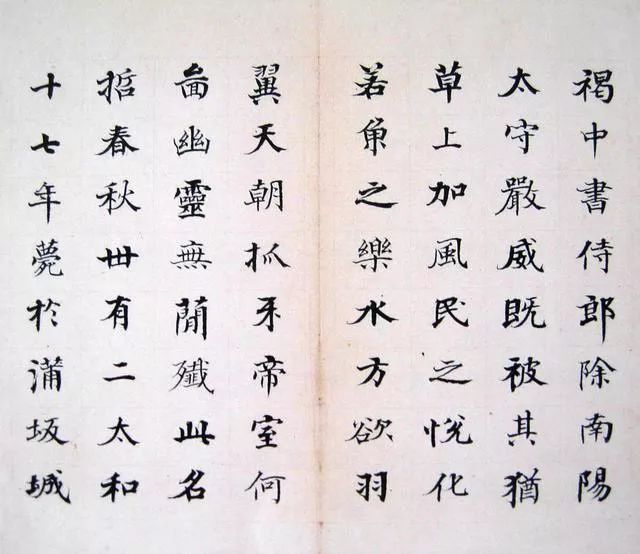 褐中書侍郎除南陽
太守嚴威既被其猶
草上加風民之悅化
若魚之樂水方欲羽
翼天朝抓牙帝室何
啚幽靈無蕳殲此名
哲春秋卌有二太和
十七年薨於蒲坂城